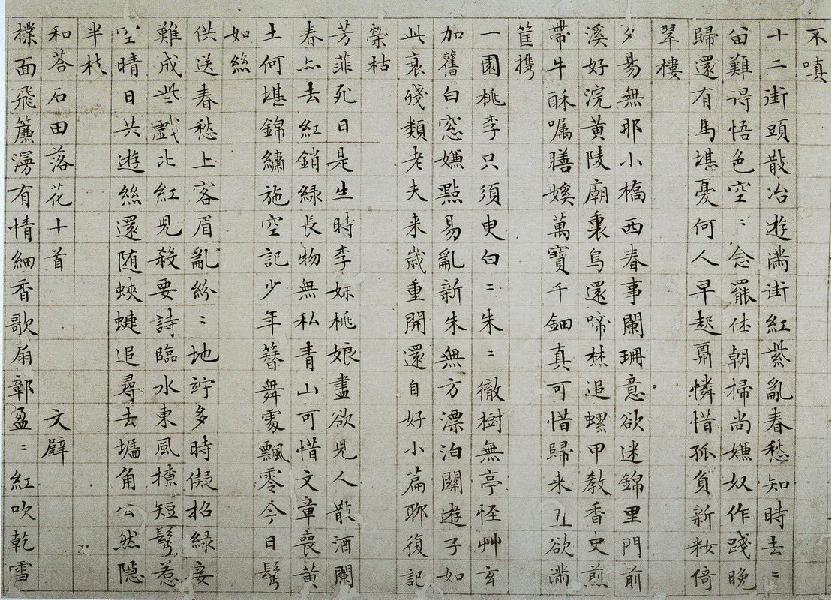 不嗔
十二街頭散冶遊滿街紅紫亂春愁知時去〻
留難得悟色空〻念罷休朝掃尚嫌奴作踐晚
歸還有馬堪憂何人早起憐惜孤負新妝倚
翠樓
夕陽無那小橋西春事闌珊意欲迷錦里門前
溪好浣黃陵廟裏鳥還啼焚追螺甲教香史煎
帶牛酥囑膳娭萬寶千鈿真可惜歸来直欲滿
筐攜
一園桃李只須臾白〻朱〻徹樹無亭怪艸玄
加舊白窓嫌點易亂新朱無方漂泊關遊子如
此衰殘類老夫来歲重開還自好小篇聊復記
榮枯
芳菲死日是生時李妹桃娘盡欲兒人散酒闌
春亦去紅銷綠長物無私青山可惜文章喪黃
土何堪錦繡施空記少年簪舞處飄零今日鬢
如絲
供送春愁上客眉亂紛〻地竚多時儗招綠妾
難成些戲比紅兒殺要詩臨水東風撩短鬢惹
空晴日共遊絲還随蛺蜨追尋去墻角公然隱
半枝
和答石田落花十首 文璧
撲面飛簾漫有情細香歌扇鄣盈〻紅吹乾雪